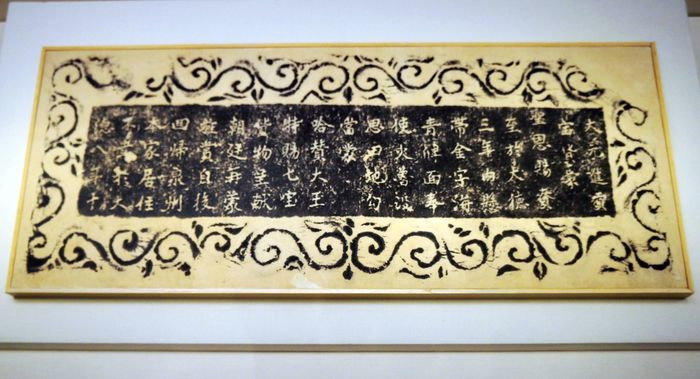 大元進貢
寶貨蒙
聖恩賜賚
至於大德
三年內懸
帶金字海
青牌面奉
使火魯沒
思田地勾
當蒙
哈贊大王
特賜七寶
貨物呈獻
朝廷再蒙
旌賞自後
回歸泉州
本家居住
不幸於大
德八年十